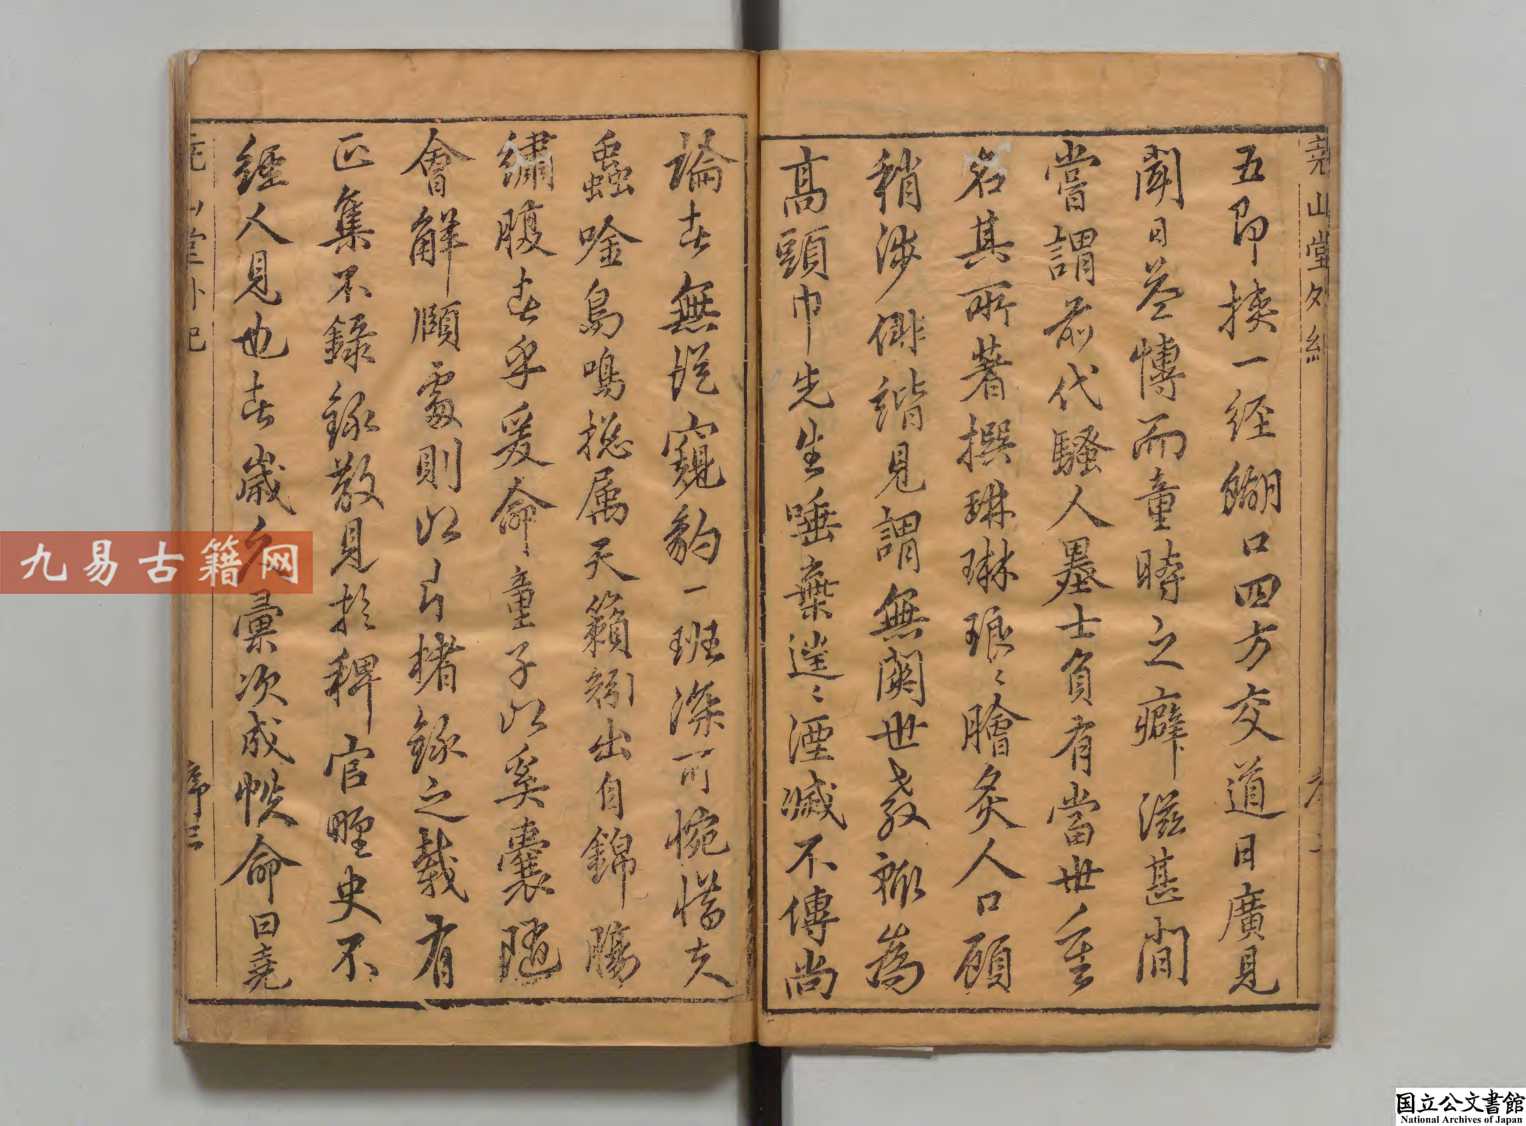 堯山堂外紀
五即挾一經餬口四方交道日廣見
聞日益博而童時之癖滋甚間
嘗謂前代騷人墨士負有當世重
名其所著撰琳琳琅〻膾炙人口顧
稍涉俳諧見謂無關世教輒為
高頭巾先生唾棄遂〻湮滅不傳尚
論者無從窺豹一班深可惋惜夫
蟲唫鳥鳴揔屬天籟矧出自錦腸
繡腹者乎爰命童子以奚囊隨
會解頤處則以片楮錄之載有
正集不錄錄散見於稗官野史不
經人見也者歲久彙次成帙命曰堯
堯山堂外紀
序三
九易古籍网
国立公文書館
National Archives of Japan